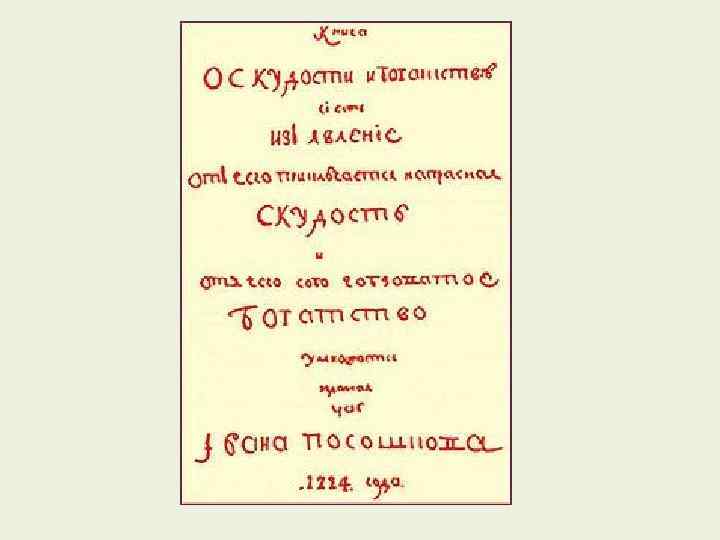 Книга
О СКУДОСТИ и богатствѣ
сі есть
изъявленіе
отчего приключается напрасная
СКУДОСТЬ
и
отчего
богатство
умножатися
Івана посошкова
1724 года